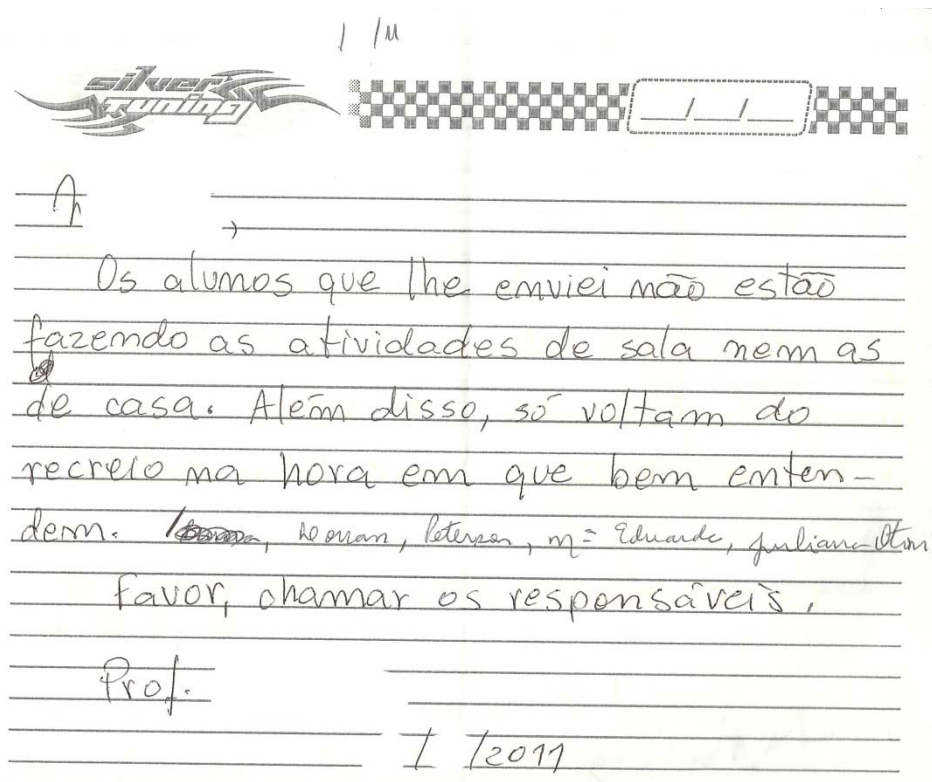 silver
tuning
__/__/__
À
Os alunos que lhe enviei não estão
fazendo as atividades de sala nem as
de casa. Além disso, só voltam do
recreio na hora em que bem enten-
dem. , Peterson, Mª Eduarda, Juliana
Favor, chamar os responsáveis.
Prof.
/ /2011